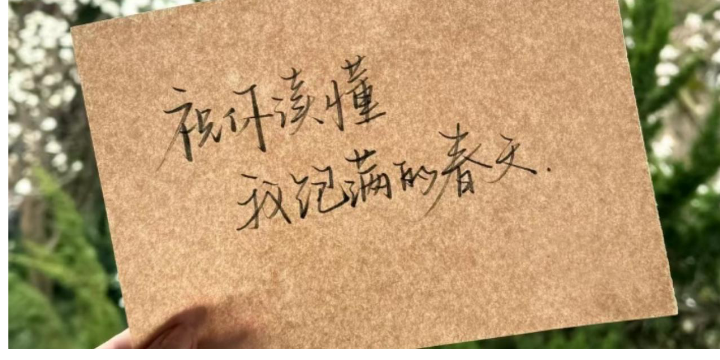 祝你读懂
我饱满的春天.